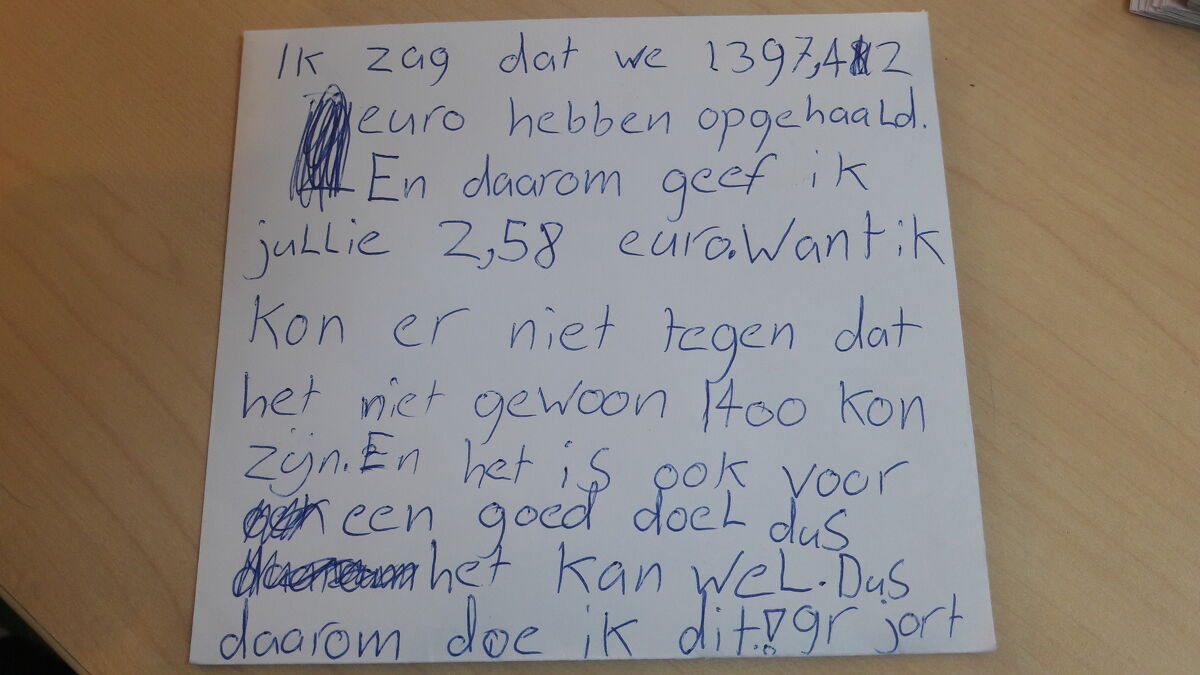 Ik zag dat we 1397,42
euro hebben opgehaald.
En daarom geef ik
jullie 2,58 euro. Want ik
kon er niet tegen dat
het niet gewoon 1400 kon
zijn. En het is ook voor
een goed doel dus
het kan wel. Dus
daarom doe ik dit!! gr jort